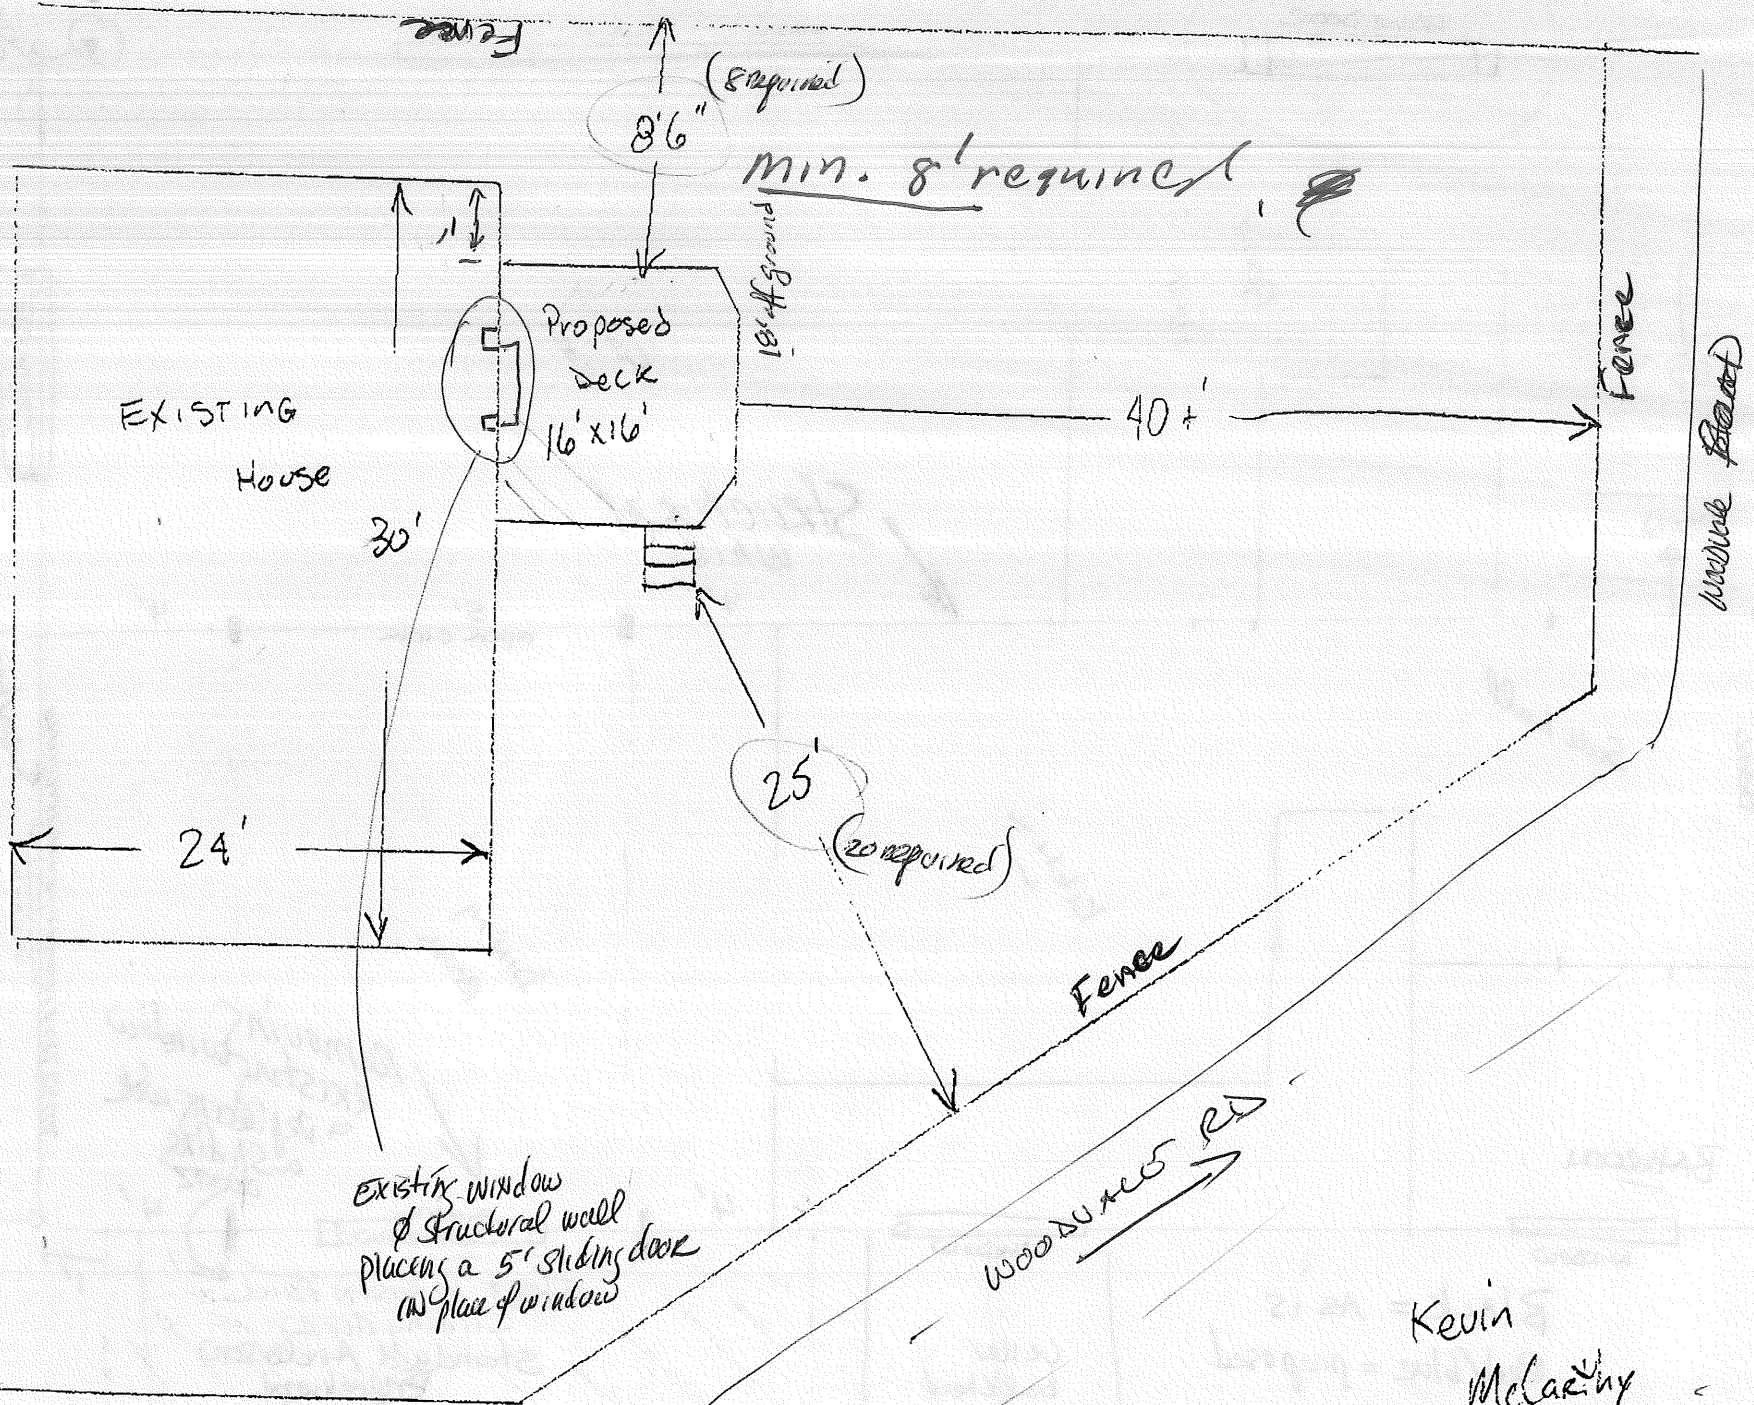 Fence
(8 required)
8'6"
Min. 8' required
18" off ground
Proposed
Deck
16' x 16'
Existing
House
30'
40+'
Fence
24'
25'
(20 required)
Fence
Woodvale RD
Existing window
Ø structural wall
placing a 5' sliding door
in place of window
Kevin
McCarthy